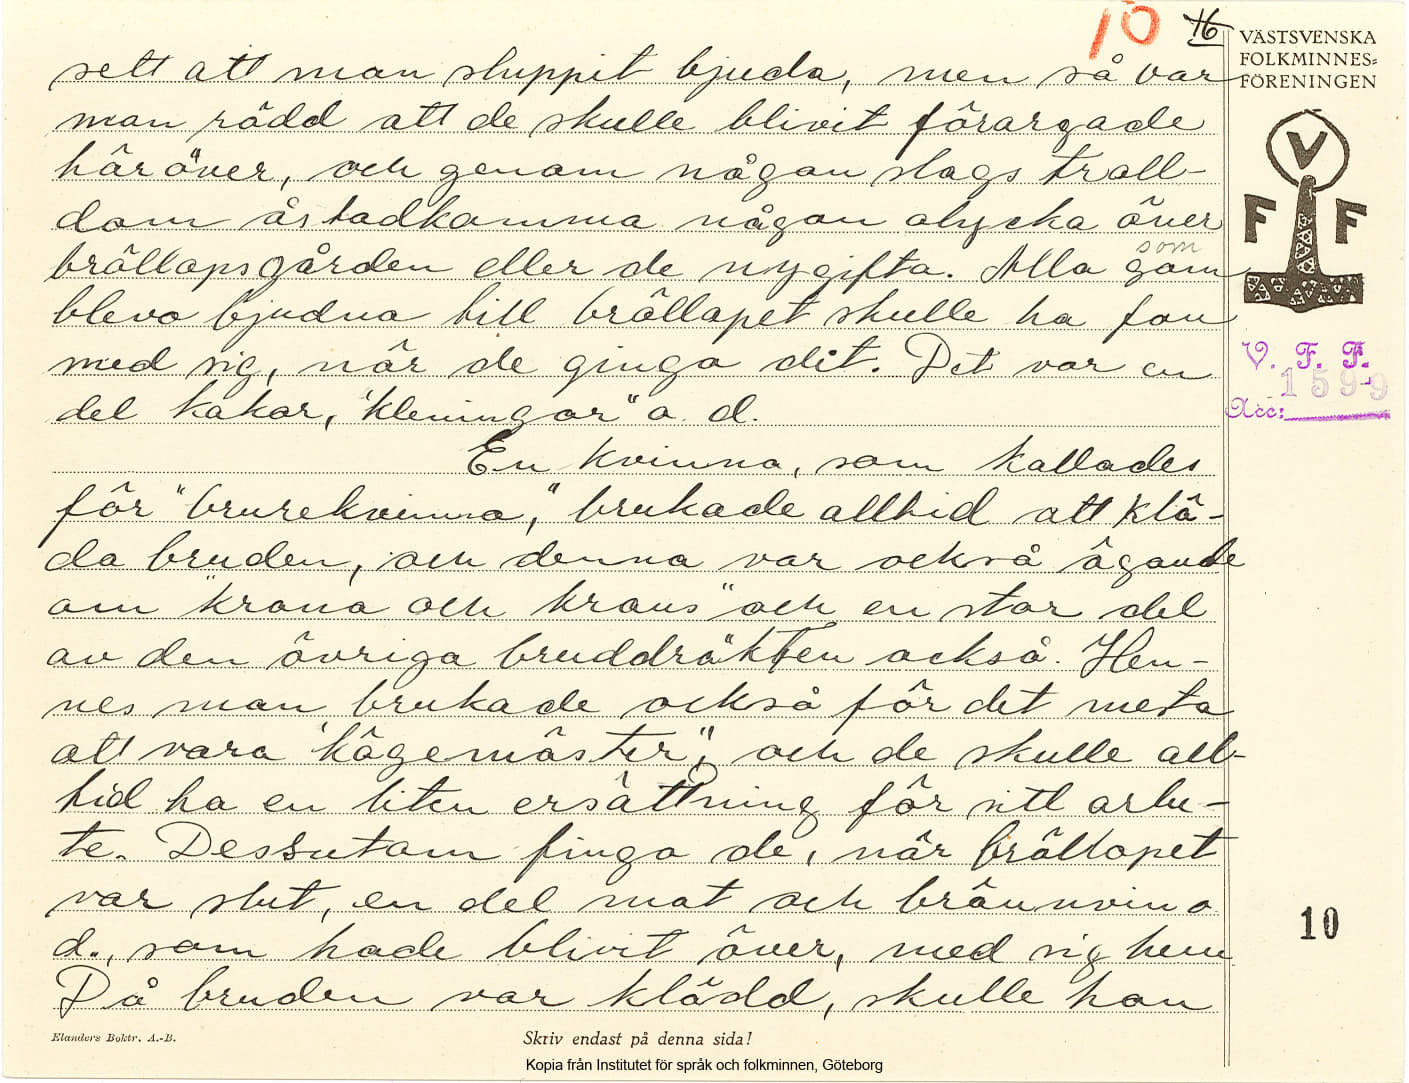 10 16
VÄSTSVENSKA
FOLKMINNES=
FÖRENINGEN
V
F F
V. F. F.
1599
Acc:
sett att man sluppit bjuda, men så var
man rädd att de skulle blivit förargade
häröver, och genom någon slags troll-
dom åstadkomma någon olycka över
bröllopsgården eller de nygifta. Alla som
blevo bjudna till bröllopet skulle ha fon
med sig, när de gingo dit. Det var en
del kakor, "kleningor" o. d.
En kvinna, som kallades
för "brurekvinna," brukade alltid att klä-
da bruden, och denna var också ägande
om "krona och krans" och en stor del
av den övriga bruddräkten också. Hen-
nes man brukade också för det mesta
att vara "kögemäster", och de skulle all-
tid ha en liten ersättning för sitt arbe-
te. Dessutom fingo de, när bröllopet
var slut, en del mat och brännvin o.
d., som hade blivit över, med sig hem
Då bruden var klädd, skulle hon
10
Elanders Boktr. A.-B.
Skriv endast på denna sida!
Kopia från Institutet för språk och folkminnen, Göteborg